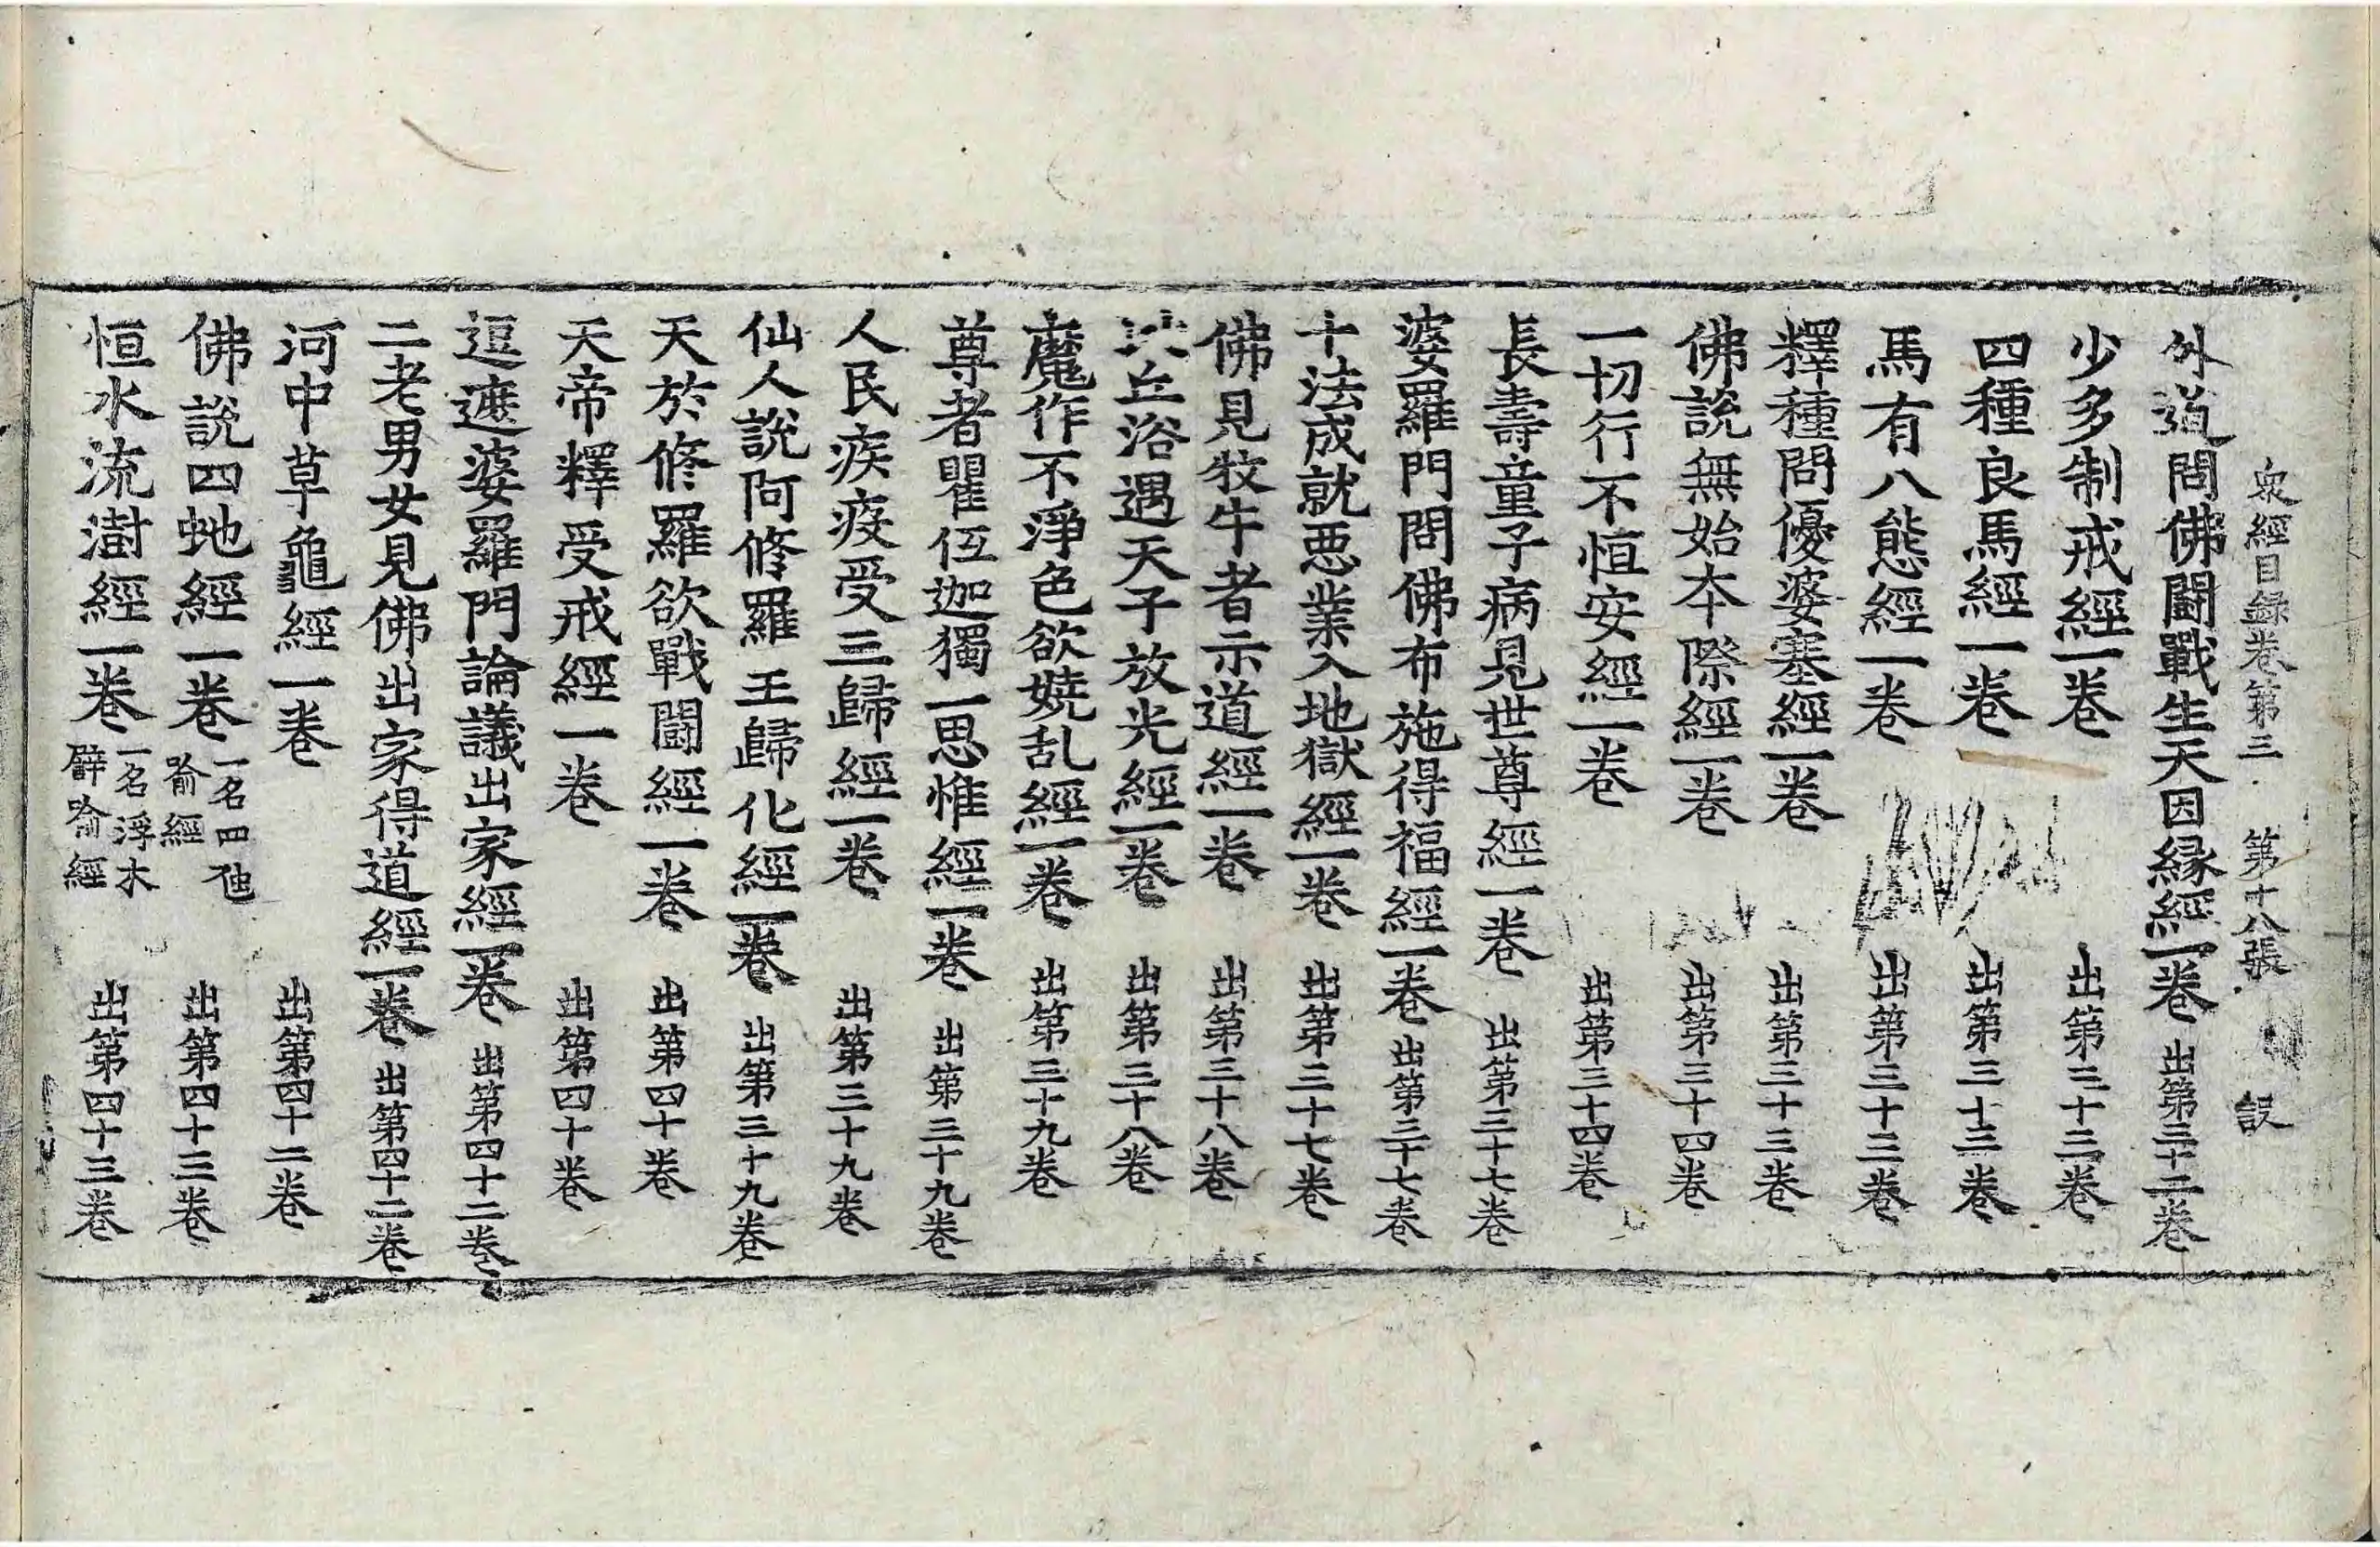 衆經目録卷第三 第十八張 設
外道問佛鬪戰生天因緣經一卷 出第三十二卷
少多制戒經一卷 出第三十三卷
四種良馬經一卷 出第三十三卷
馬有八態經一卷 出第三十三卷
釋種問優婆塞經一卷 出第三十三卷
佛說無始本際經一卷 出第三十四卷
一切行不恒安經一卷 出第三十四卷
長壽童子病見世尊經一卷 出第三十七卷
婆羅門問佛布施得福經一卷 出第三十七卷
十法成就惡業入地獄經一卷 出第三十七卷
佛見牧牛者示道經一卷 出第三十八卷
丘浴遇天子放光經一卷 出第三十八卷
魔作不淨色欲嬈乱經一卷 出第三十九卷
尊者瞿伍迦獨一思惟經一卷 出第三十九卷
人民疾疫受三歸經一卷 出第三十九卷
仙人說阿修羅王歸化經一卷 出第三十九卷
天於修羅欲戰鬪經一卷 出第四十卷
天帝釋受戒經一卷 出第四十卷
逗遮婆羅門論議出家經一卷 出第四十二卷
二老男女見佛出家得道經一卷 出第四十二卷
河中草龜經一卷 出第四十二卷
佛說四虵經一卷 一名四虵喻經 出第四十三卷
恒水流澍經一卷 一名浮木辟喻經 出第四十三卷